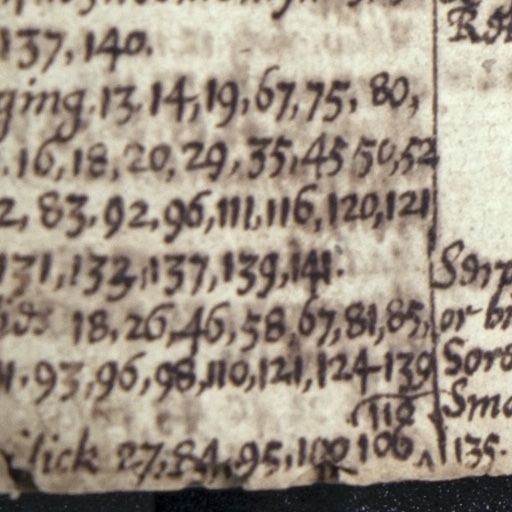 137, 140.
ging. 13. 14, 19, 67, 75, 80,
. 16, 18, 20, 29, 35, 45 50, 52
2, 83. 92, 96, 111, 116, 120, 121
131, 133, 137, 139, 141.
18, 26, 46, 58. 67, 81, 85, or
. 93, 96, 98, 110, 121, 124 139
112
sick 27, 84, 95, 100 106 135.